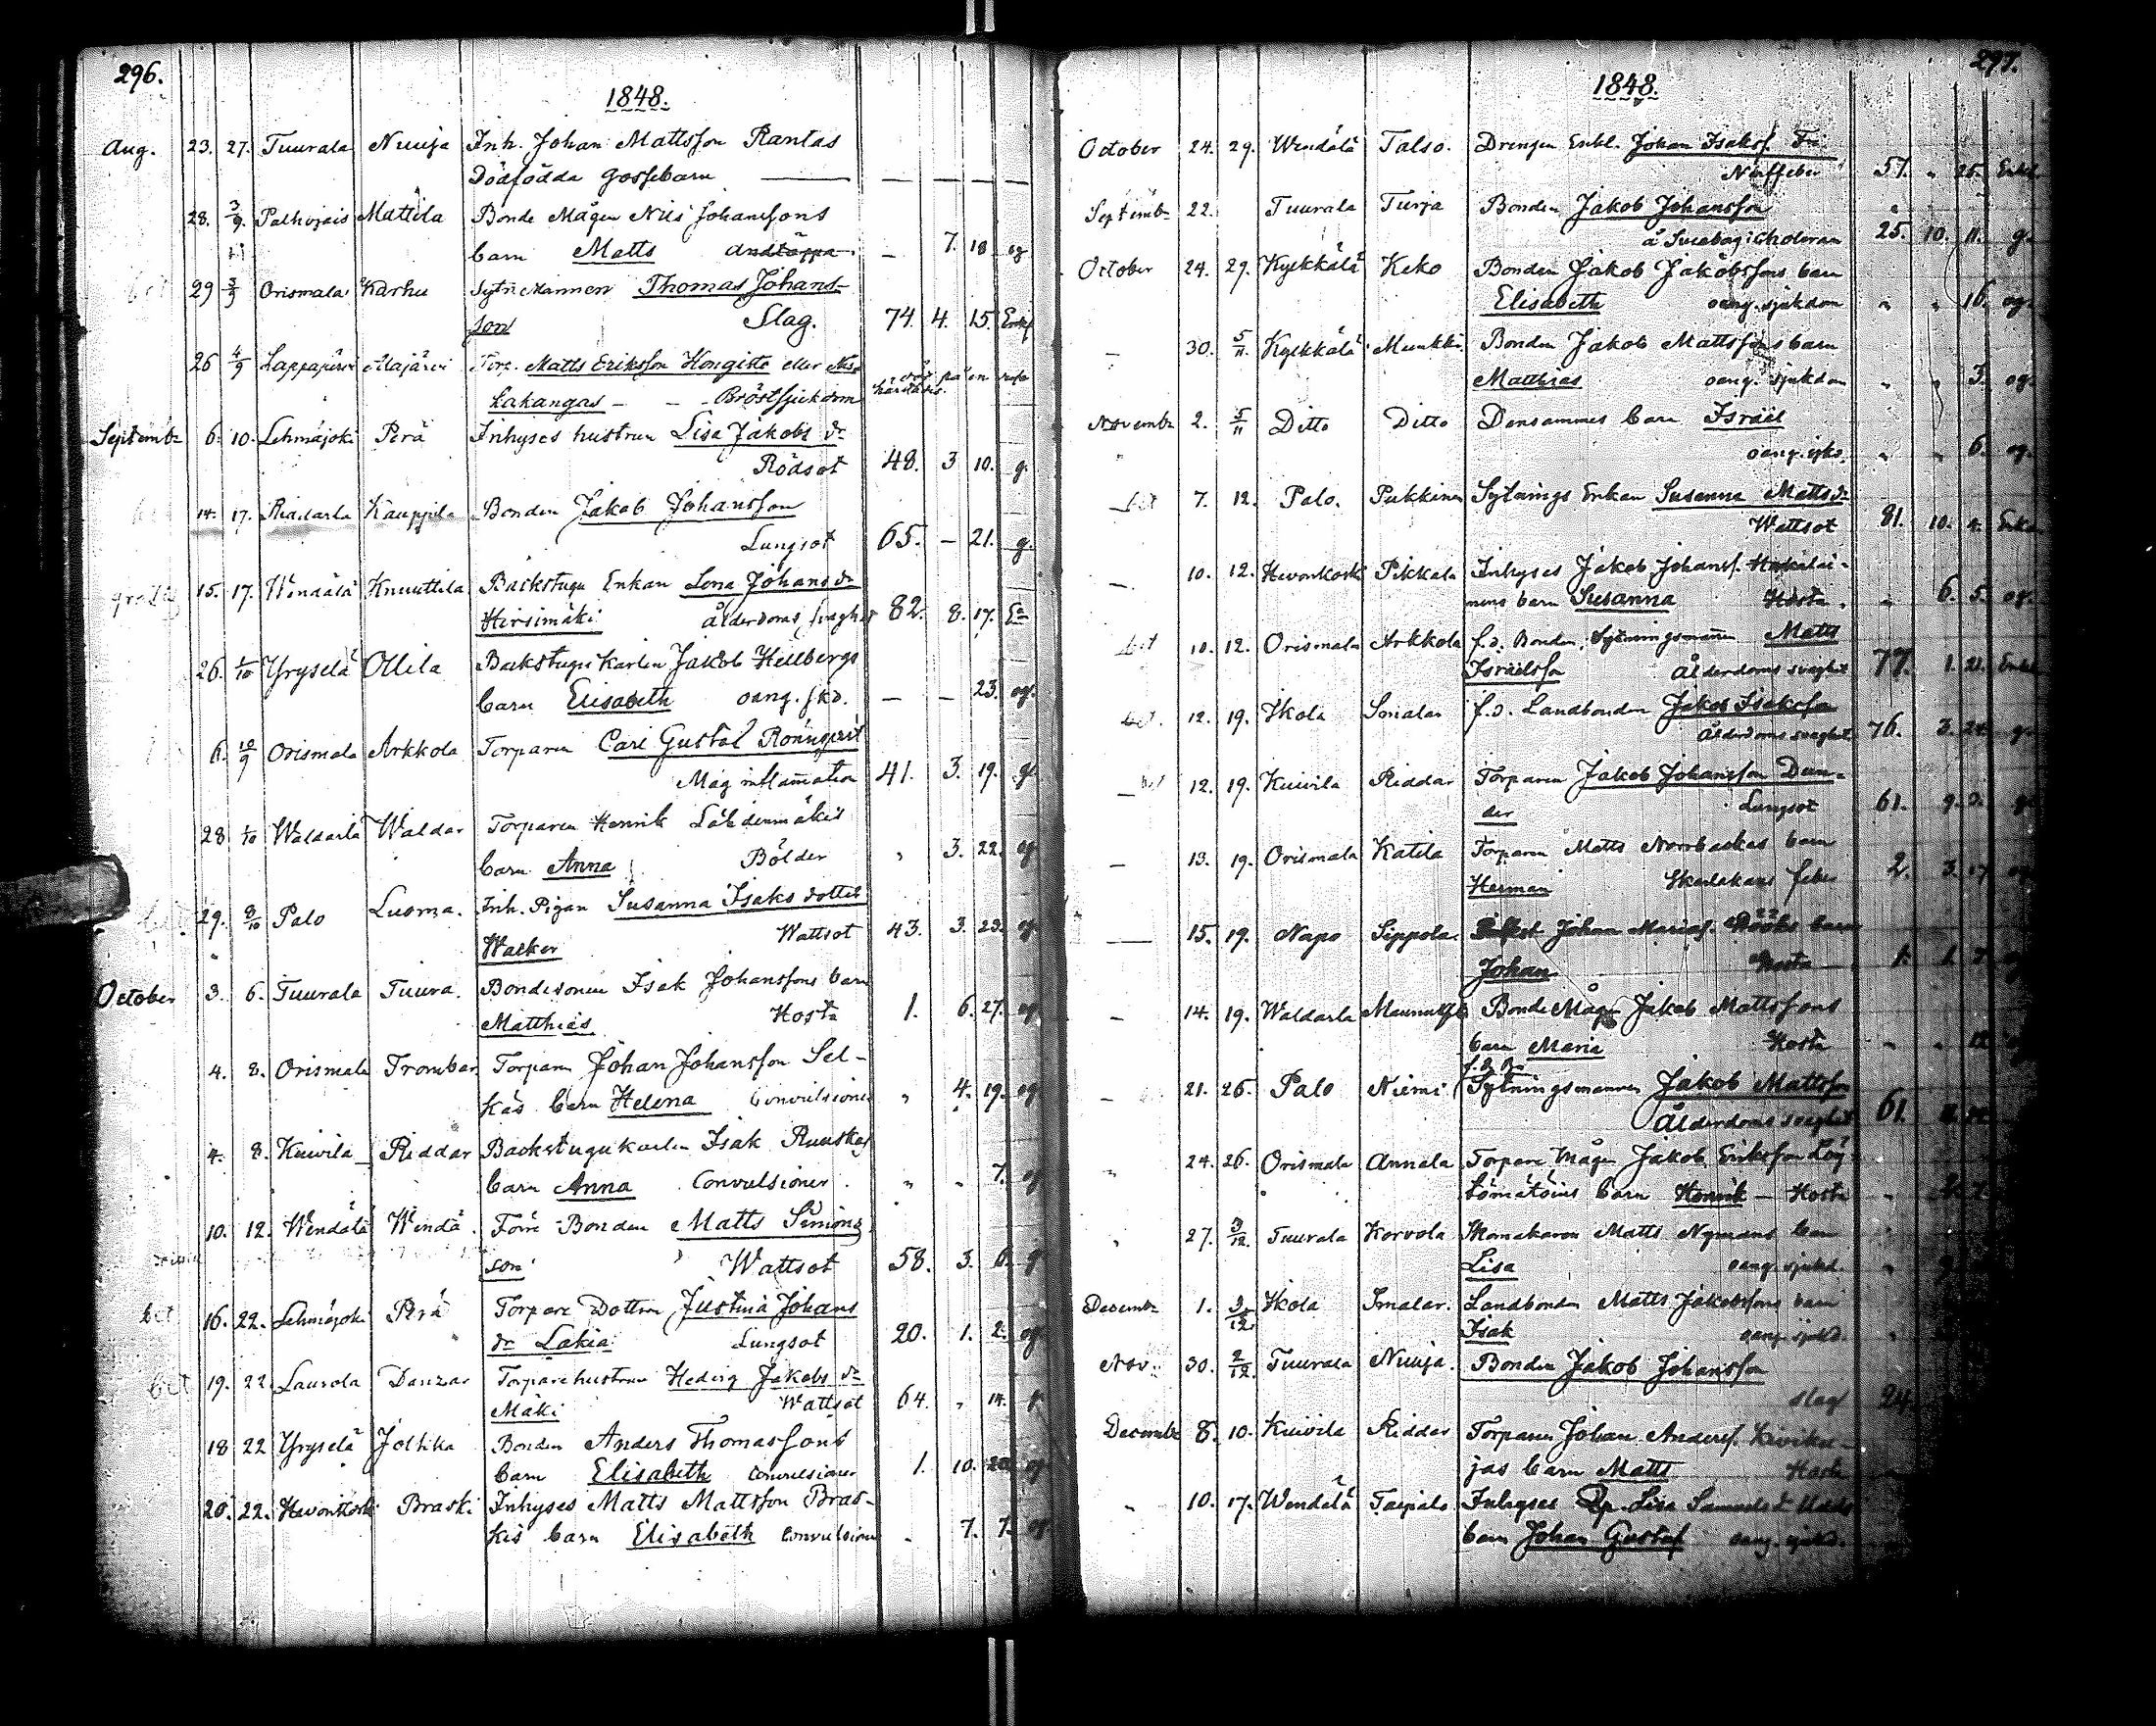 296.
1848.
Aug. 23. 27. Tuurala Nuuja Inh. Johan Mattsson Rantas
Dödfödda gossebarn — — — —
28. 3/9. Palhojais Mattila Bonde Mågen Nils Johanssons
barn Matts Andtäppa — 7. 18 og
29 3/9 Orismala Karhu Sytn.Mannen Thomas Johans-
son Slag. 74. 4. 15. Enkl
26 4/9 Lappajärvi Alajärvi Torp. Matts Eriksson Hongisto eller
Lakangas — — Bröstsjukdom
Septembr 6. 10. Lehmäjoki Perä Inhyses hustrun Lisa Jakobs dr
Rödsot 48. 3 10. g.
14. 17. Riddarla Kauppila Bonden Jakob Johansson
Lungsot 65. — 21. g.
gratis 15. 17. Wendälä Knuuttila Backstugu Enkan Lena Johans dr
Hirsimäki Ålderdoms svaghet 82. 8. 17. Ea
26. 1/10 Yryselä Ollila Backstugu Karlen Jakob Hellbergs
barn Elisabeth oang. skd. — — 23. og.
6. 10/9 Orismala Arkkola Torparen Carl Gustaf Rönnqvist
Mag inflamation 41. 3. 19. g.
28 1/10 Waldarla Waldar Torparen Henrik Lähdenmäkis
barn Anna Bölder „ 3. 22. og
29. 8/10 Palo Luoma. Inh. Pigan Susanna Isaks dotter
Walker Wattsot 43. 3. 23. og.
October 3. 6. Tuurala Tuura. Bondesonen Isak Johanssons barn
Matthias Hosta 1. 6. 27. og
4. 8. Orismala Trombar Torparen Johan Johansson Sel-
käs barn Helena Convulsioner „ 4. 19. og
4. 8. Kuivila Riddar Backstugukarlen Isak Ruuskas
barn Anna Convulsioner „ „ 7. og
10. 12. Wendälä Wendä. Förre Bonden Matts Simons
son Wattsot 58. 3. 6. g
bet 16. 22. Lehmäjoki Perä Torpare Dottren Justina Johans
dr Lakia Lungsot 20. 1. 2. og
bet 19. 22 Laurola Danzar Torparehustrun Hedvig Jakobs dr
Mäki Wattsot 64. „ 14. g.
18 22 Yryselä Jolkka Bonden Anders Thomassons
barn Elisabeth convulsioner 1. 10. 20. og
20. 22. Hevonkoski Braski Inhyses Matts Mattsson Bras-
kis barn Elisabeth convulsioner „ 7. 7. og
297.
1848.
October 24. 29. Wendälä Talso. Drengen Enkl. Johan Isakss.
Nerffeber 57. „ 25. Enkl
Septembr 22. Tuurala Turja Bonden Jakob Johansson
å Sveaborg i Choleran 25. 10. 11. g.
October 24. 29. Kylkkälä Keko Bonden Jakob Jakobssons barn
Elisabeth oang. sjukdom „ „ 16. og.
— 30. 5/11. Kylkkälä Munkki Bonden Jakob Mattssons barn
Matthias oang. sjukdom „ „ 3. og.
Novembr 2. 5/11 Ditto Ditto Densammes barn Israel
oang. sjkd. „ „ 6. og.
bet 7. 12. Palo. Pukkinen Sytnings Enkan Susanna Matts dr
Wattsot 81. 10. 4. Enka
— 10. 12. Hevonkoski Pikkala Inhyses Jakob Johanss. Hakalai-
nens barn Susanna Hosta. „ 6. 5. og.
bet 10. 12. Orismala Arkkola f.d. Bonden, Sytningsmannen Matts
Israelsson Ålderdoms svaghet 77. 1. 21. Enkl
bet. 12. 19. Ikola Smalar f.d. Landbonden Jakob Isaksson
Ålderdoms svaghet. 76. 3. 24. g.
bet 12. 19. Kuivila Riddar Torparen Jakob Johansson Dun-
der Lungsot 61. 9. 3. g
— 13. 19. Orismala Katila Torparen Matts Norrbackas barn
Herman Skarlakans feber 2. 3. 17 og
— 15. 19. Napo Sippola Johan barn
Johan Hosta 1. 1. 7.
— 14. 19. Waldarla Bonde Mågen Jakob Mattssons
barn Maria Hosta „ „ 12
— 21. 26. Palo Niemi Sytningsmannen Jakob Mattsson
Ålderdoms svaghet 61.
„ 24. 26. Orismala Annala Torpare Mågen Jakob Eriksson Löy-
tömäkäis barn Henrik — Hosta
„ 27. 3/12. Tuurala Korvola Skomakaren Matts Nymans barn
Lisa oang. sjukd.
Decembr 1. 3/12. Ikola Smalar. Landbonden Matts Jakobssons barn
Isak oang. sjukd.
Nov. 30. 2/12. Tuurala Nuuja. Bonden Jakob Johansson
slag 24
Decembr 8. 10. Kuivila Riddar Torparen Johan Anderss. Kiviku-
jas barn Matts Hosta
„ 10. 17. Wendälä Taipale Inhyses Lisa Samuels dr
barn Johan Gustaf oang. sjukd.